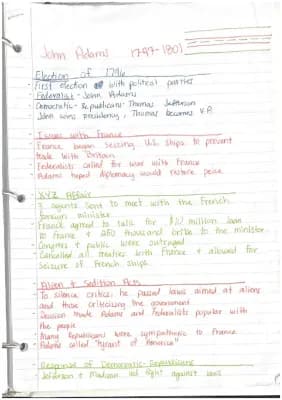 John Adams 1797-1801
Election of 1796
First election with political parties
Federalist - John Adams
Democratic - Republicans: Thomas Jefferson
John wins presidency, Thomas becomes V.P.
Issues with France
France began seizing U.S. ships to prevent
trade with Britain
Federalists called for war with France
Adams hoped diplomacy would restore peace
XYZ Affair
3 agents sent to meet with the French
foreign minister
France agreed to talk for $10 million loan
to France + 250 thousand bribe to the minister
Congress + public were outraged
Cancelled all treaties with France + allowed for
seizure of French ships
Alien + Sedition Acts
To silence critics, he passed laws aimed at aliens
and those criticizing the government
Decision made Adams and Federalists popular with
the people
Many Republicans were sympathetic to France
Adams called "tyrant of America"
Response of Democratic-Republicans
Jefferson + Madison led fight against laws